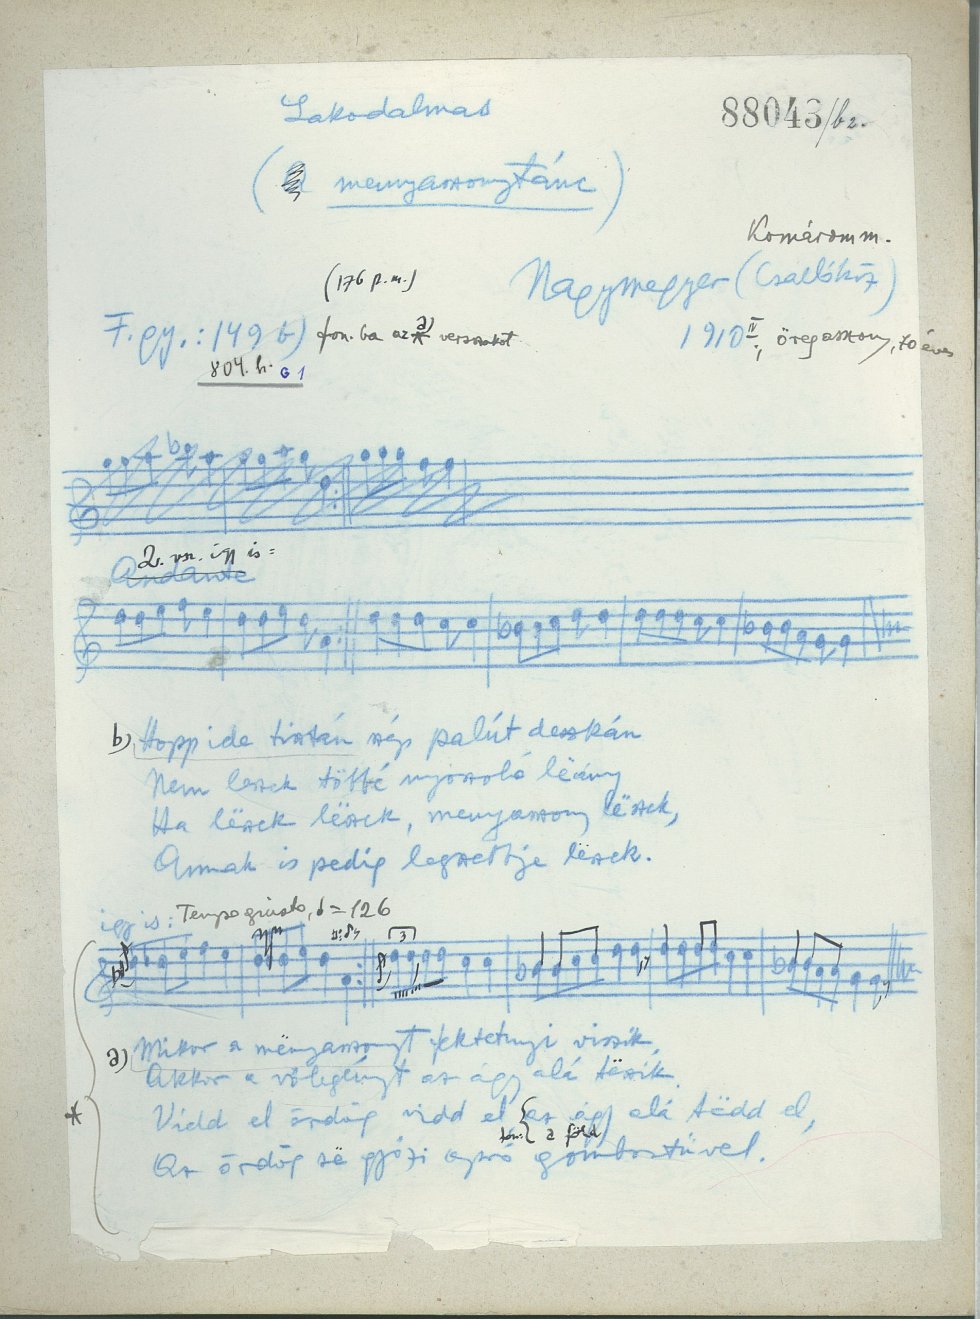 Lakodalmas
88043/b2.
( menyasszonytánc )
Komárom m.
(176 p.m.)
Nagymegyer (Csallóköz)
F.gy.: 149 b) fon. ba az a) versszakot
1910 IV ; öregasszony, 70 éves
804. h. G 1
2. vsz. így is =
Andante
b) Hopp ide tisztán szép palút deszkán
Nem leszek többé nyoszoló lëány
Ha lëszek lëszek, menyasszony lëszek,
Annak is pedig legszebbje lëszek.
így is: Tempo giusto, = 126
3
a) Mikor a mënyasszonyt fektetnyi viszik
Akkor a vőlegényt az ágy alá tëszik
Vidd el ördög vidd el az ágy alá tëdd el,
a föld
* Az ördög së győzi apró gombostűvel.